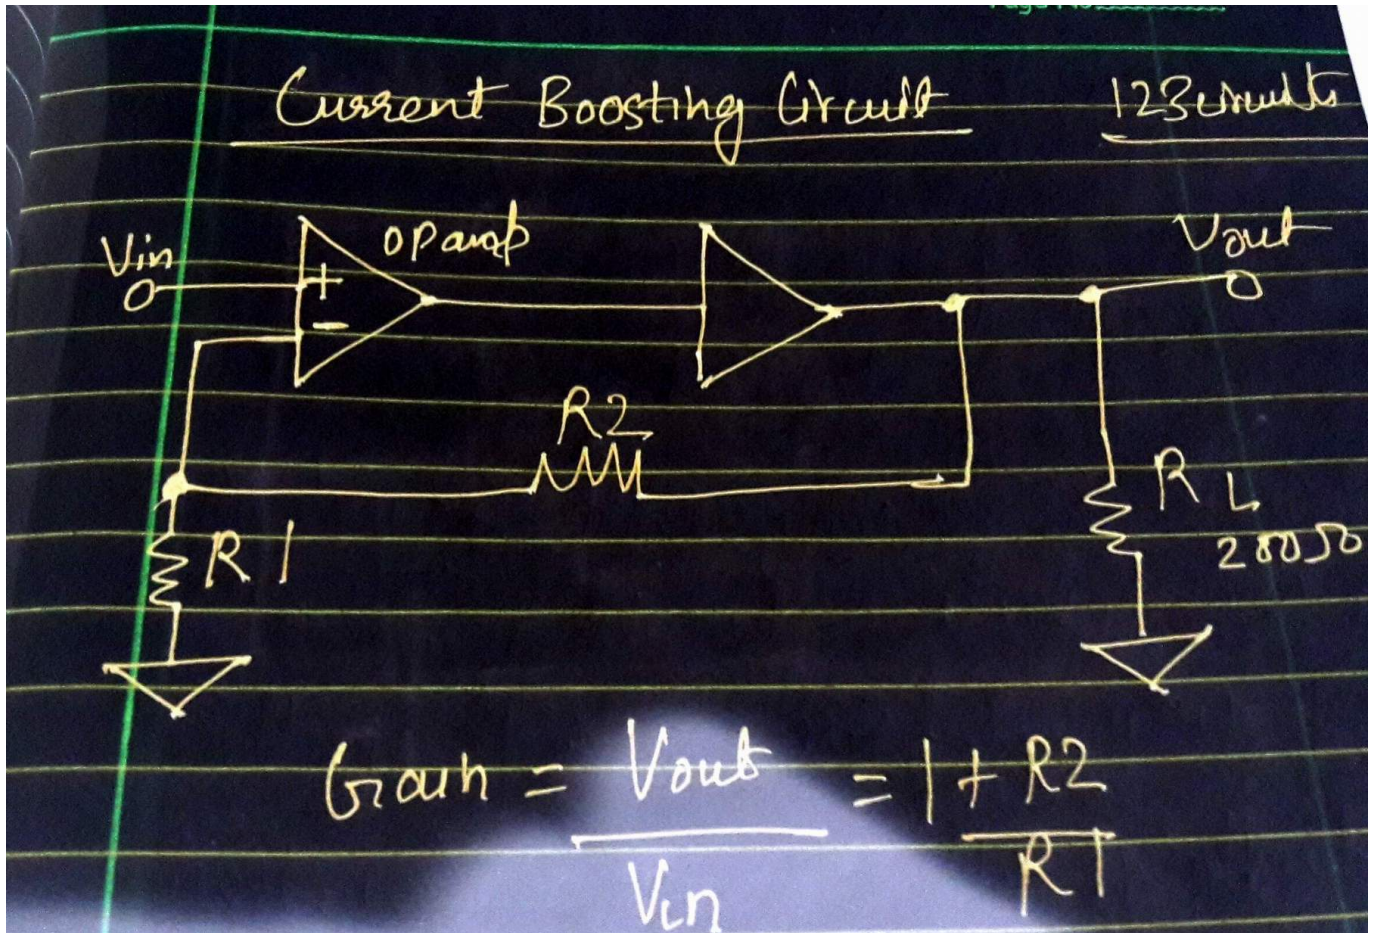 Current Boosting Circuit 123circuits
Vin
opamp
Vout
+
-
R2
R1
RL
200Ω
Gain = Vout = 1 + R2
Vin R1